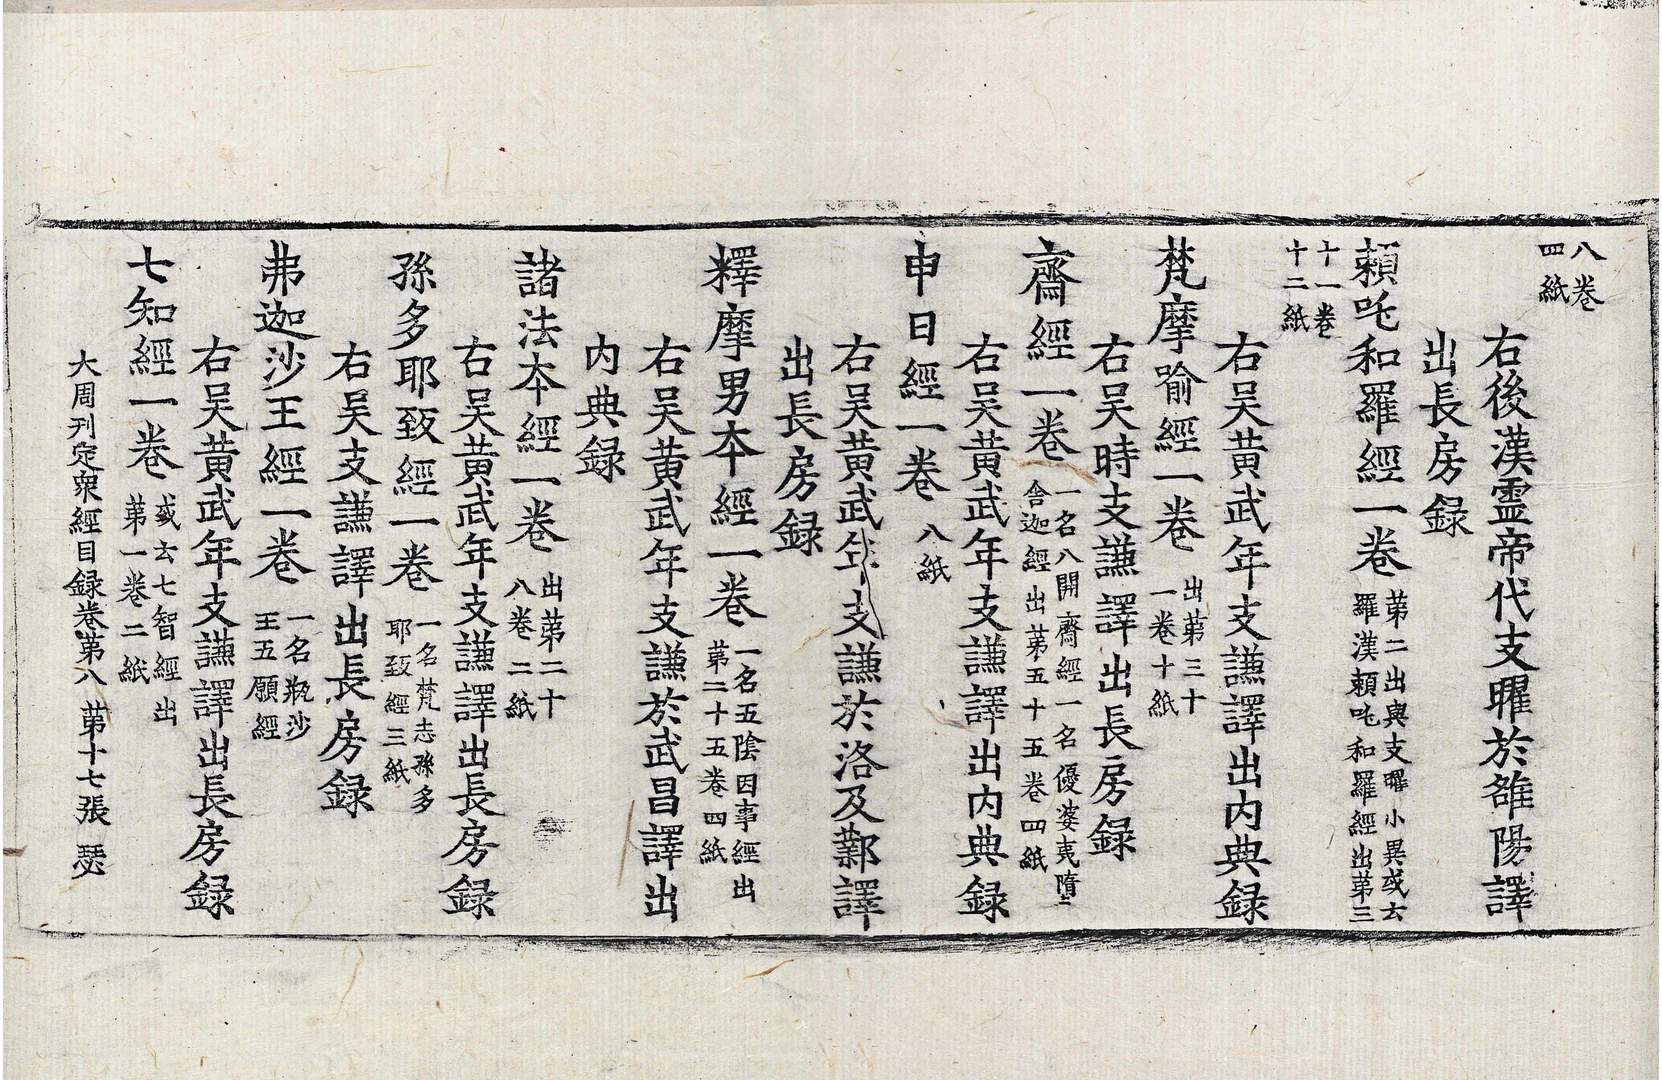 八卷
四紙
右後漢靈帝代支曜於雒陽譯
出長房録
頼吒和羅經一卷
第二出與支曜小異或云
羅漢頼吒和羅經出第三
十一卷
十二紙
右吴黄武年支謙譯出内典録
梵摩喻經一卷
出第三十
一卷十紙
右吴時支謙譯出長房録
齋經一卷
一名八開齋經一名優婆夷墮
舍迦經出第五十五卷四紙
右吴黄武年支謙譯出内典録
申日經一卷
八紙
右吴黄武年支謙於洛及鄴譯
出長房録
釋摩男本經一卷
一名五隂因事經出
第二十五卷四紙
右吴黄武年支謙於武昌譯出
内典録
諸法本經一卷
出第二十
八卷二紙
右吴黄武年支謙譯出長房録
孫多耶致經一卷
一名梵志孫多
耶致經三紙
右吴支謙譯出長房録
弗迦沙王經一卷
一名瓶沙
王五願經
右吴黄武年支謙譯出長房録
七知經一卷
或云七智經出
第一卷二紙
大周刊定衆經目録卷第八　第十七張　瑟